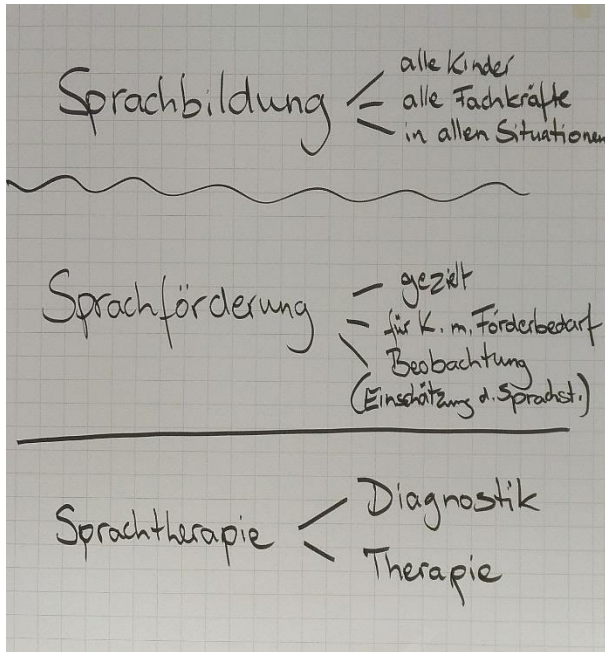 Sprachbildung
alle Kinder
alle Fachkräfte
in allen Situationen
Sprachförderung
gezielt
für K. m. Förderbedarf
Beobachtung
(Einschätzung d. Sprachst.)
Sprachtherapie
Diagnostik
Therapie